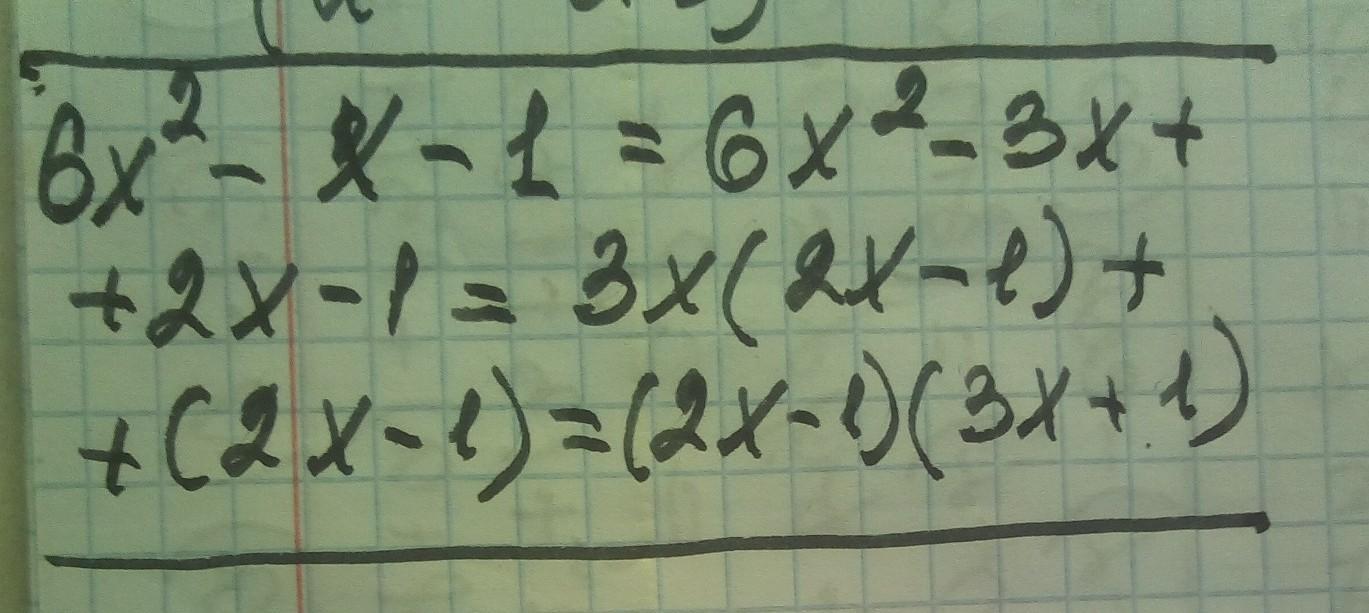 6x² - x - 1 = 6x² - 3x +
+ 2x - 1 = 3x(2x - 1) +
+ (2x - 1) = (2x - 1)(3x + 1)